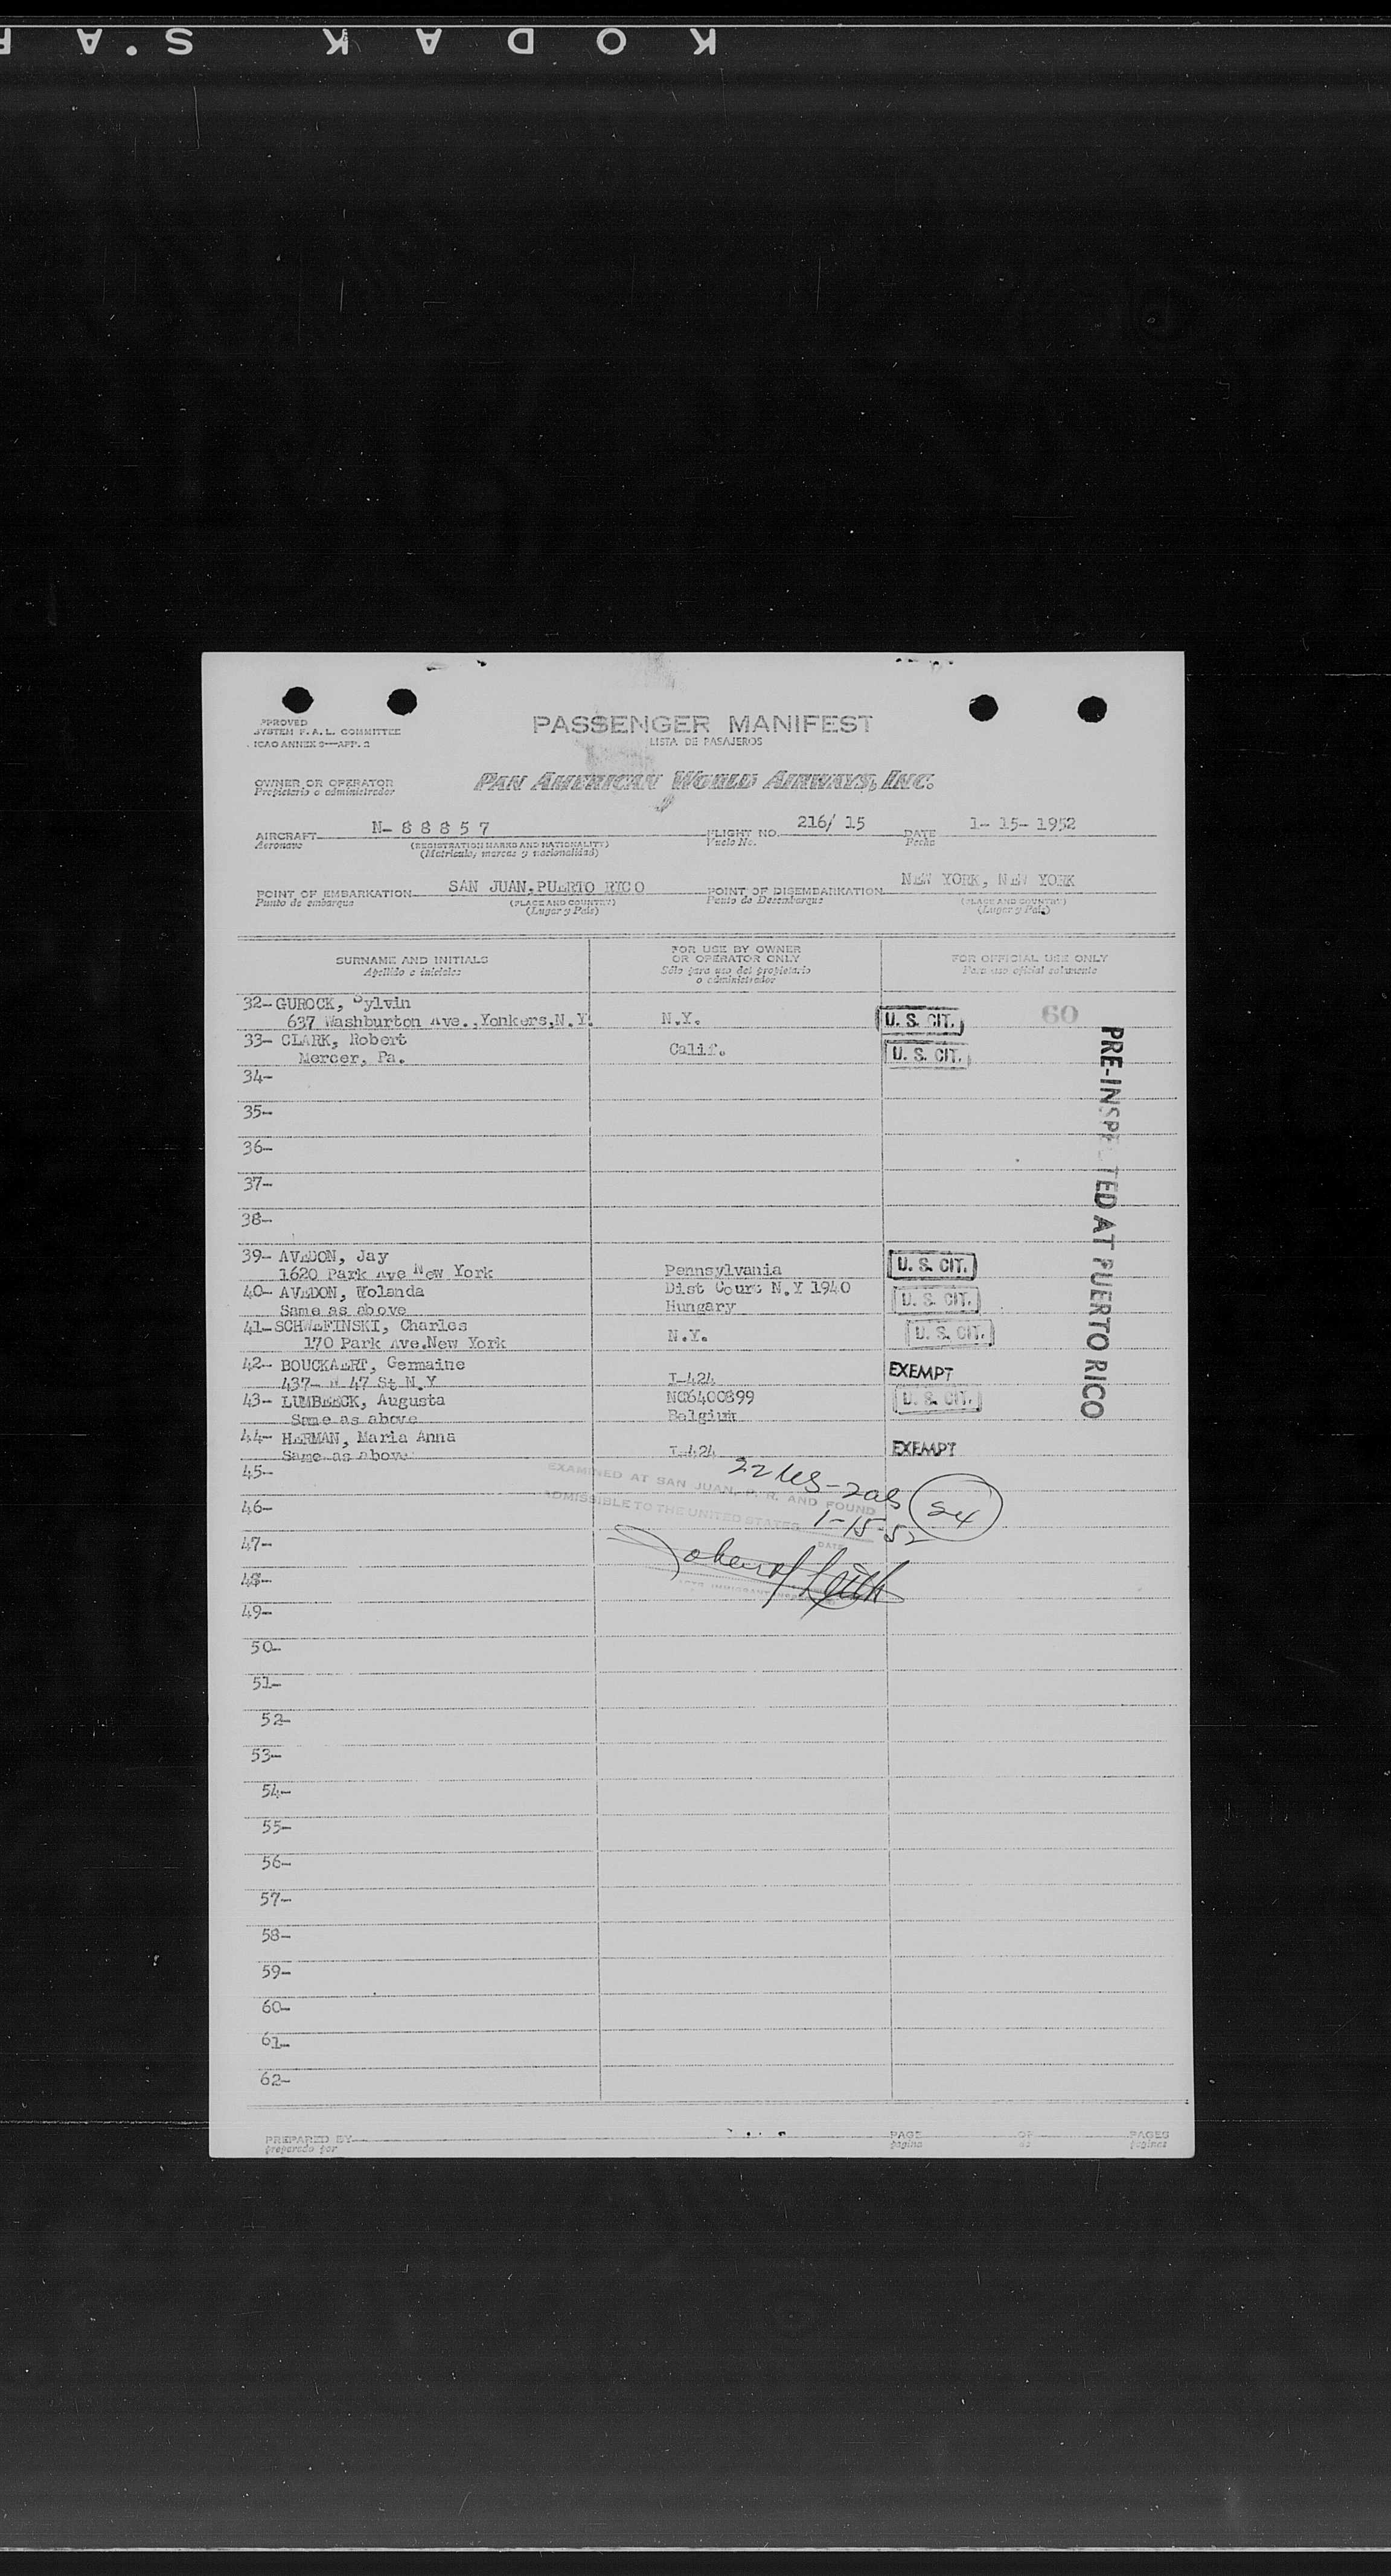 KODAK S.A.F
PASSENGER MANIFEST
LISTA DE PASAJEROS
PPROVED
SYSTEM F.A.L. COMMITTEE
ICAO ANNEX 9—APP. 2
OWNER OR OPERATOR
Propietario o administrador
PAN AMERICAN WORLD AIRWAYS, INC.
AIRCRAFT N- 8 8 8 5 7 FLIGHT NO. 216/ 15 DATE 1- 15- 1952
Aeronave (REGISTRATION MARKS AND NATIONALITY) Vuelo No. Fecha
(Matricula, marcas y nacionalidad)
POINT OF EMBARKATION SAN JUAN,PUERTO RICO POINT OF DISEMBARKATION NEW YORK, NEW YORK
Punto de embarque (PLACE AND COUNTRY) Punto de Desembarque (PLACE AND COUNTRY)
(Lugar y País) (Lugar y País)
SURNAME AND INITIALS
Apellido e iniciales
FOR USE BY OWNER
OR OPERATOR ONLY
Sólo para uso del propietario
o administrador
FOR OFFICIAL USE ONLY
Para uso oficial solamente
32- GUROCK, Sylvin
637 Washburton Ave.,Yonkers,N.Y. N.Y. U. S. CIT. 60
33- CLARK, Robert
Mercer, Pa. Calif. U. S. CIT.
PRE-INSPECTED AT PUERTO RICO
34-
35-
36-
37-
38-
39- AVEDON, Jay
1620 Park Ave New York Pennsylvania U. S. CIT.
40- AVEDON, Wolanda Dist Court N.Y 1940
Same as above Hungary U. S. CIT.
41-SCHWEFINSKI, Charles
170 Park Ave.New York N.Y. U. S. CIT.
42- BOUCKAERT, Germaine
437- W 47 St N.Y I-424 EXEMPT
43- LUMBEECK, Augusta NQ6400899
Same as above Belgium U. S. CIT.
44- HERMAN, Maria Anna
Same as above I-424 EXEMPT
45-
22 US-2als
EXAMINED AT SAN JUAN, P. R. AND FOUND
46- 24
ADMISSIBLE TO THE UNITED STATES 1-15-52
DATE
47-
48-
49-
50-
51-
52-
53-
54-
55-
56-
57-
58-
59-
60-
61-
62-
PREPARED BY PAGE OF PAGES
preparado por página de páginas